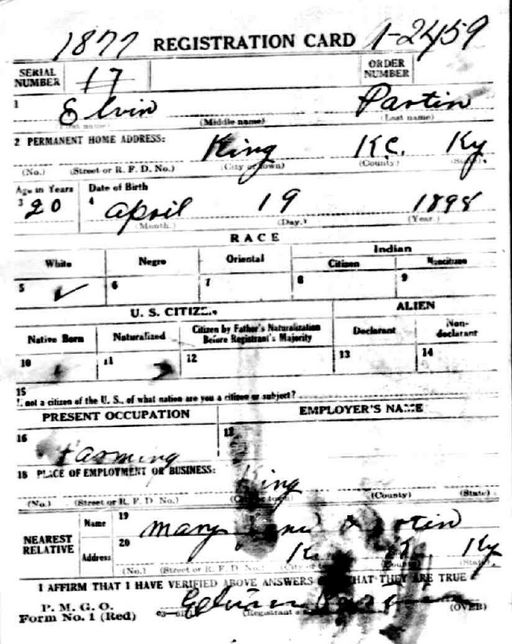 1877 REGISTRATION CARD 1-2459
SERIAL NUMBER 17 ORDER NUMBER
1 Elvin Partin
(First name) (Middle name) (Last name)
2 PERMANENT HOME ADDRESS: King K.C. Ky.
(No.) (Street or R. F. D. No.) (City or town) (County) (State)
Age in Years Date of Birth
3 20 4 April 19 1898
(Month.) (Day.) (Year.)
RACE
White Negro Oriental Indian
Citizen Noncitizen
5 ✓ 6 7 8 9
U. S. CITIZEN ALIEN
Native Born Naturalized Citizen by Father's Naturalization Before Registrant's Majority Declarant Non-declarant
10 11 12 13 14
15
If not a citizen of the U. S., of what nation are you a citizen or subject?
PRESENT OCCUPATION EMPLOYER'S NAME
16 Farming 17
18 PLACE OF EMPLOYMENT OR BUSINESS: King
(No.) (Street or R. F. D. No.) (City or town) (County) (State)
NEAREST RELATIVE
Name 19 Mary Partin
Address 20 Ky
(No.) (Street or R. F. D. No.) (City or (State)
I AFFIRM THAT I HAVE VERIFIED ABOVE ANSWERS THAT THEY ARE TRUE
P. M. G. O.
Form No. 1 (Red) (Registrant's (OVER)